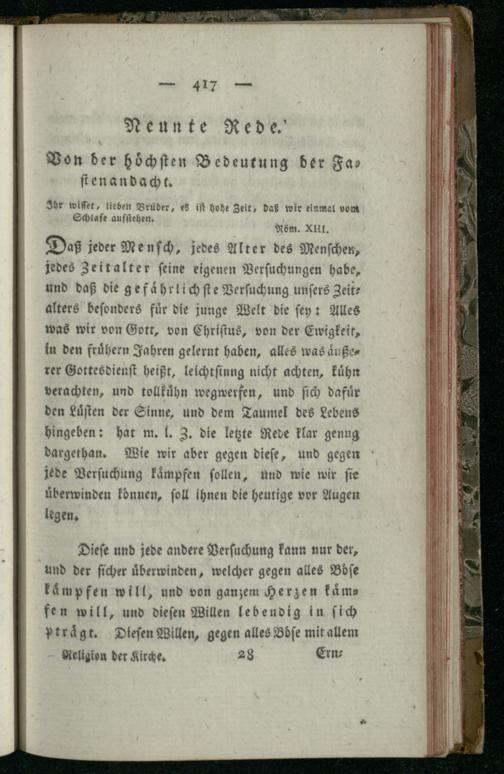 — 417 —
Neunte Rede.
Von der höchsten Bedeutung der Fa-
stenandacht.
Ihr wisset, lieben Brüder, es ist hohe Zeit, daß wir einmal vom
Schlafe aufstehen.
Röm. XIII.
Daß jeder Mensch, jedes Alter des Menschen,
jedes Zeitalter seine eigenen Versuchungen habe,
und daß die gefährlichste Versuchung unsers Zeit-
alters besonders für die junge Welt die sey: Alles
was wir von Gott, von Christus, von der Ewigkeit,
in den frühern Jahren gelernt haben, alles was äuße-
rer Gottesdienst heißt, leichtsinng nicht achten, kühn
verachten, und tollkühn wegwerfen, und sich dafür
den Lüsten der Sinne, und dem Taumel des Lebens
hingeben: hat m. l. Z. die letzte Rede klar genug
dargethan. Wie wir aber gegen diese, und gegen
jede Versuchung kämpfen sollen, und wie wir sie
überwinden können, soll ihnen die heutige vor Augen
legen.
Diese und jede andere Versuchung kann nur der,
und der sicher überwinden, welcher gegen alles Böse
kämpfen will, und von ganzem Herzen käm-
fen will, und diesen Willen lebendig in sich
pträgt. Diesen Willen, gegen alles Böse mit allem
Religion der Kirche. 28 Ern-